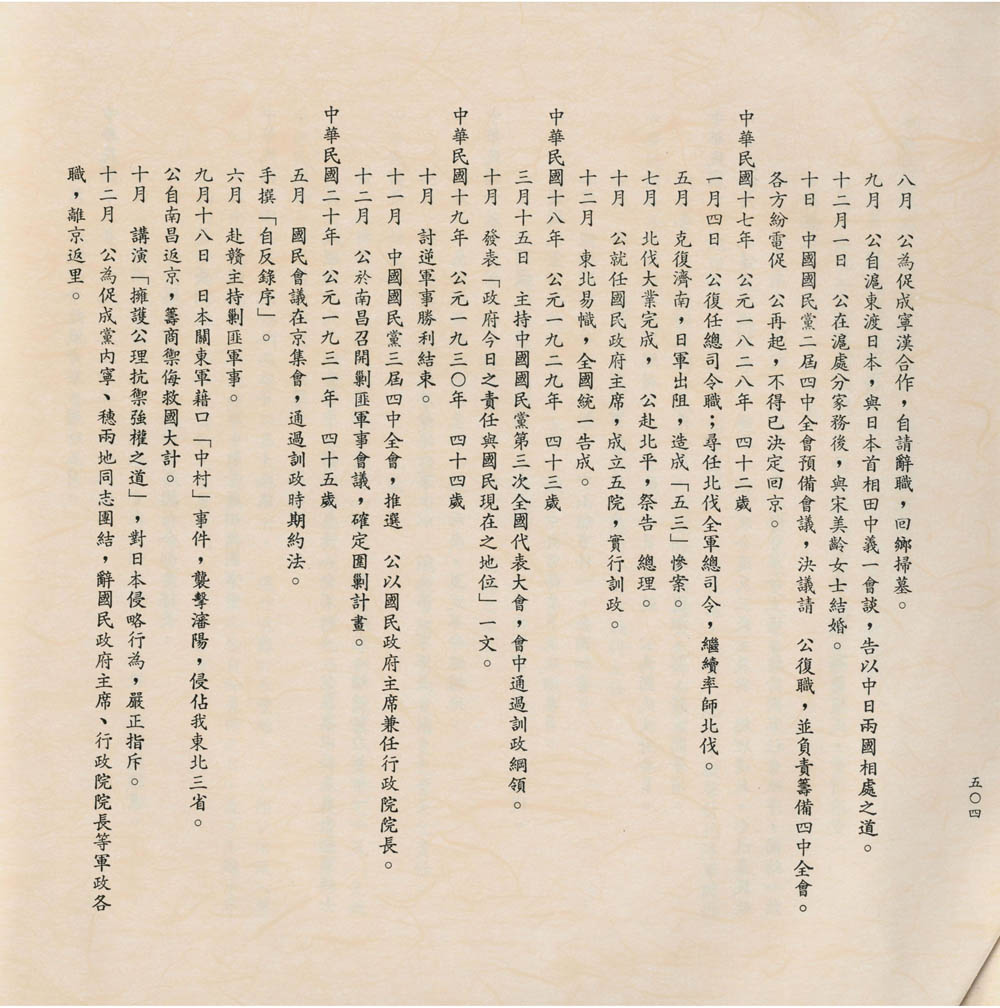 八月　公為促成寧漢合作，自請辭職，回鄉掃墓。
九月　公自滬東渡日本，與日本首相田中義一會談，告以中日兩國相處之道。
十二月一日　公在滬處分家務後，與宋美齡女士結婚。
十日　中國國民黨二屆四中全會預備會議，決議請　公復職，並負責籌備四中全會。
各方紛電促　公再起，不得已決定回京。
中華民國十七年　公元一八二八年　四十二歲
一月四日　公復任總司令職；尋任北伐全軍總司令，繼續率師北伐。
五月　克復濟南，日軍出阻，造成「五三」慘案。
七月　北伐大業完成，　公赴北平，祭告　總理。
十月　公就任國民政府主席，成立五院，實行訓政。
十二月　東北易幟，全國統一告成。
中華民國十八年　公元一九二九年　四十三歲
三月十五日　主持中國國民黨第三次全國代表大會，會中通過訓政綱領。
十月　發表「政府今日之責任與國民現在之地位」一文。
中華民國十九年　公元一九三〇年　四十四歲
十月　討逆軍事勝利結束。
十一月　中國國民黨三屆四中全會，推選　公以國民政府主席兼任行政院院長。
十二月　公於南昌召開剿匪軍事會議，確定圍剿計畫。
中華民國二十年　公元一九三一年　四十五歲
五月　國民會議在京集會，通過訓政時期約法。
手撰「自反錄序」。
六月　赴贛主持剿匪軍事。
九月十八日　日本關東軍藉口「中村」事件，襲擊瀋陽，侵佔我東北三省。
公自南昌返京，籌商禦侮救國大計。
十月　講演「擁護公理抗禦強權之道」，對日本侵略行為，嚴正指斥。
十二月　公為促成黨內寧、穗兩地同志團結，辭國民政府主席、行政院院長等軍政各
職，離京返里。
五〇四